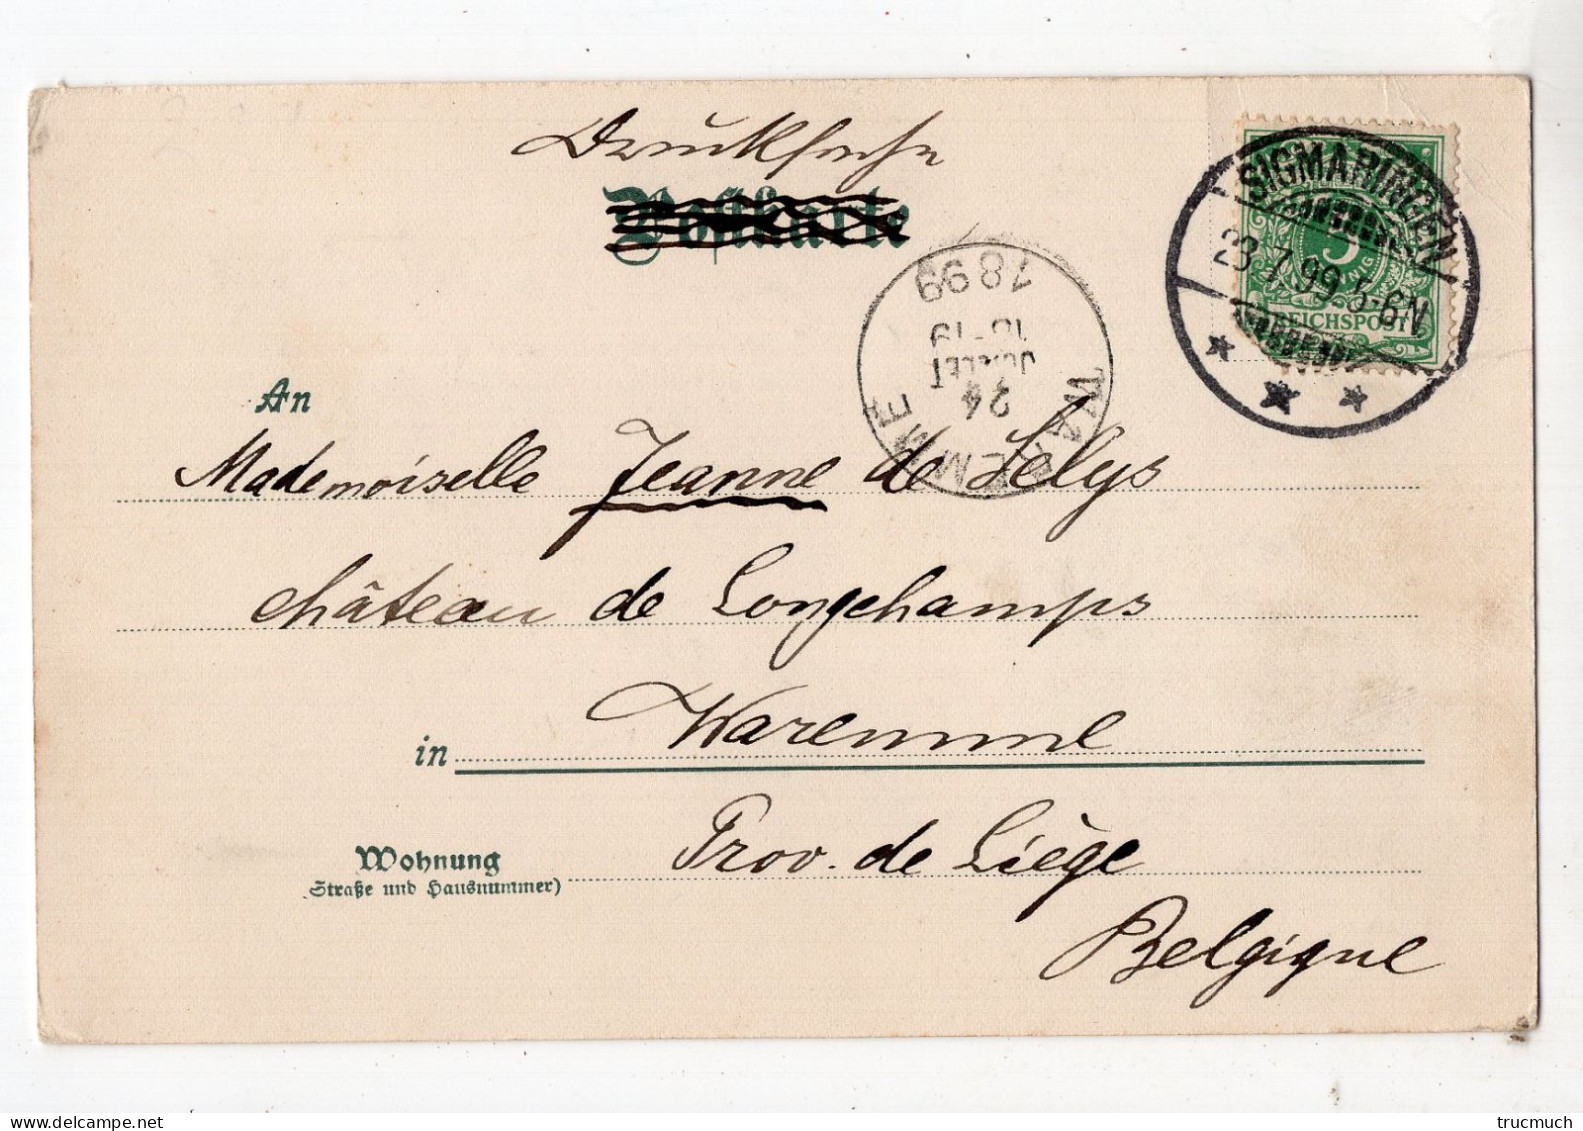 Drucksache
Postkarte
SIGMARINGEN
23.7.99.5-6N
5
REICHSPOST
WAREMME
24
JUILLET
18-19
1899
An
Mademoiselle Jeanne de Selys
château de Longchamps
in Waremme
Wohnung
Straße und Hausnummer)
Prov. de Liège
Belgique
trucmuch